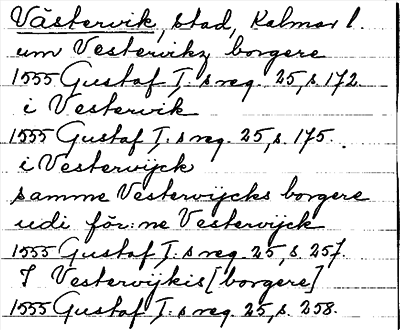 Västervik, stad, Kalmar l.
um Vestervikz borgere
1555 Gustaf I:s reg. 25, s. 172.
i Vestervik
1555 Gustaf I:s reg. 25, s. 175.
i Vestervijck
samme Vestervijcks borgere
udi för:ne Vestervijck
1555 Gustaf I:s reg. 25, s. 257.
I Vestervijkis [borgere]
1555 Gustaf I:s reg. 25, s. 258.